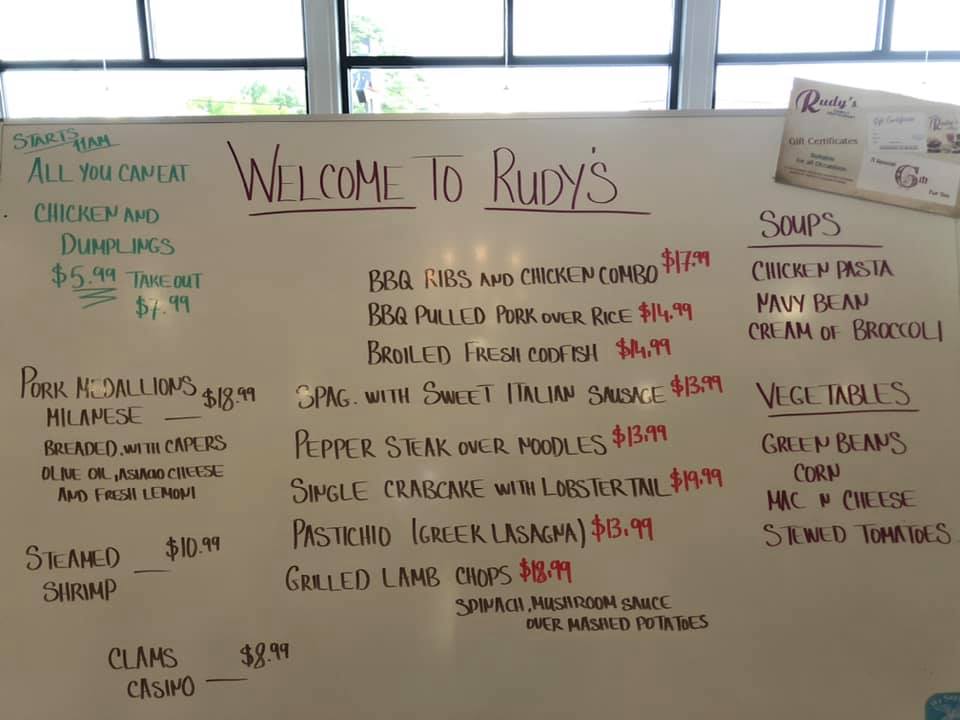 STARTS 11AM
ALL YOU CAN EAT
CHICKEN AND
DUMPLINGS
$5.99 TAKE OUT
$7.99
WELCOME TO RUDY'S
Rudy's
Gift Certificates
Suitable
for all Occasions
Gift Certificate
Rudy's
A Special
Gift
For You
BBQ RIBS AND CHICKEN COMBO $17.99
BBQ PULLED PORK OVER RICE $14.99
BROILED FRESH CODFISH $14.99
SPAG. WITH SWEET ITALIAN SAUSAGE $13.99
PEPPER STEAK OVER NOODLES $13.99
SINGLE CRABCAKE WITH LOBSTER TAIL $19.99
PASTICHIO (GREEK LASAGNA) $13.99
GRILLED LAMB CHOPS $18.99
SPINACH, MUSHROOM SAUCE
OVER MASHED POTATOES
PORK MEDALLIONS $18.99
MILANESE —
BREADED, WITH CAPERS
OLIVE OIL, ASIAGO CHEESE
AND FRESH LEMON
STEAMED — $10.99
SHRIMP
CLAMS $8.99
CASINO —
SOUPS
CHICKEN PASTA
NAVY BEAN
CREAM OF BROCCOLI
VEGETABLES
GREEN BEANS
CORN
MAC N CHEESE
STEWED TOMATOES